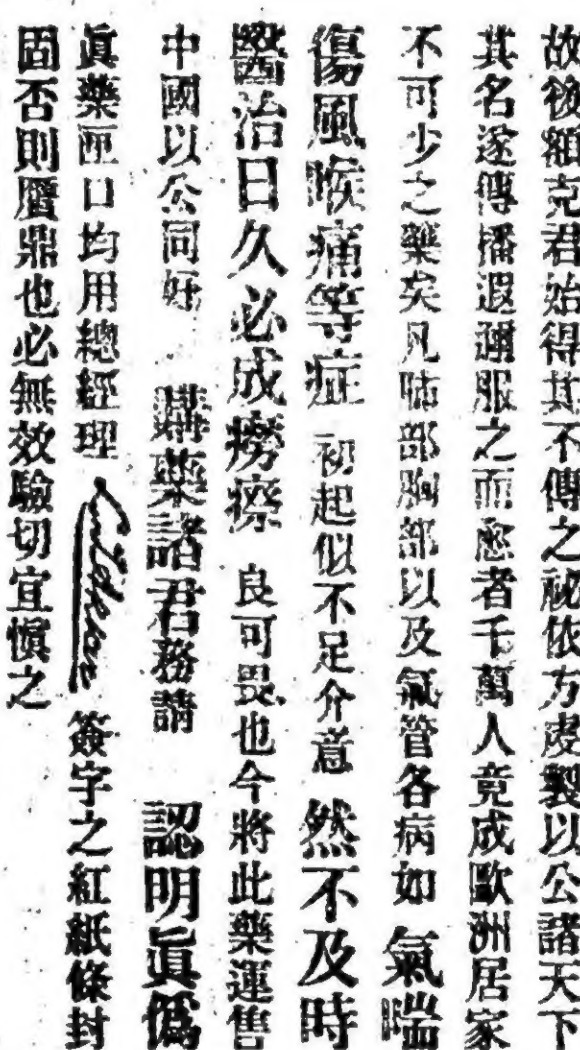 故後額克君始得其不傳之祕依方虔製以公諸天下
其名遂傳播遐邇服之而愈者千萬人竟成歐洲居家
不可少之藥矣凡肺部胸部以及氣管各病如氣喘
傷風喉痛等症初起似不足介意然不及時
醫治日久必成癆瘵良可畏也今將此藥運售
中國以公同好購藥諸君務請認明眞僞
眞藥匣口均用總經理簽字之紅紙條封
固否則贋鼎也必無效驗切宜愼之